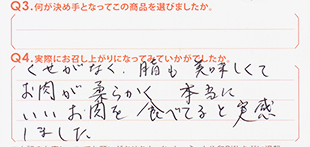 Q3.何が決め手となってこの商品を選びましたか。
Q4.実際にお召し上がりになってみていかがでしたか。
くせがなく、脂も美味しくて
お肉が柔らかく 本当に
いいお肉を食べてると実感
しました